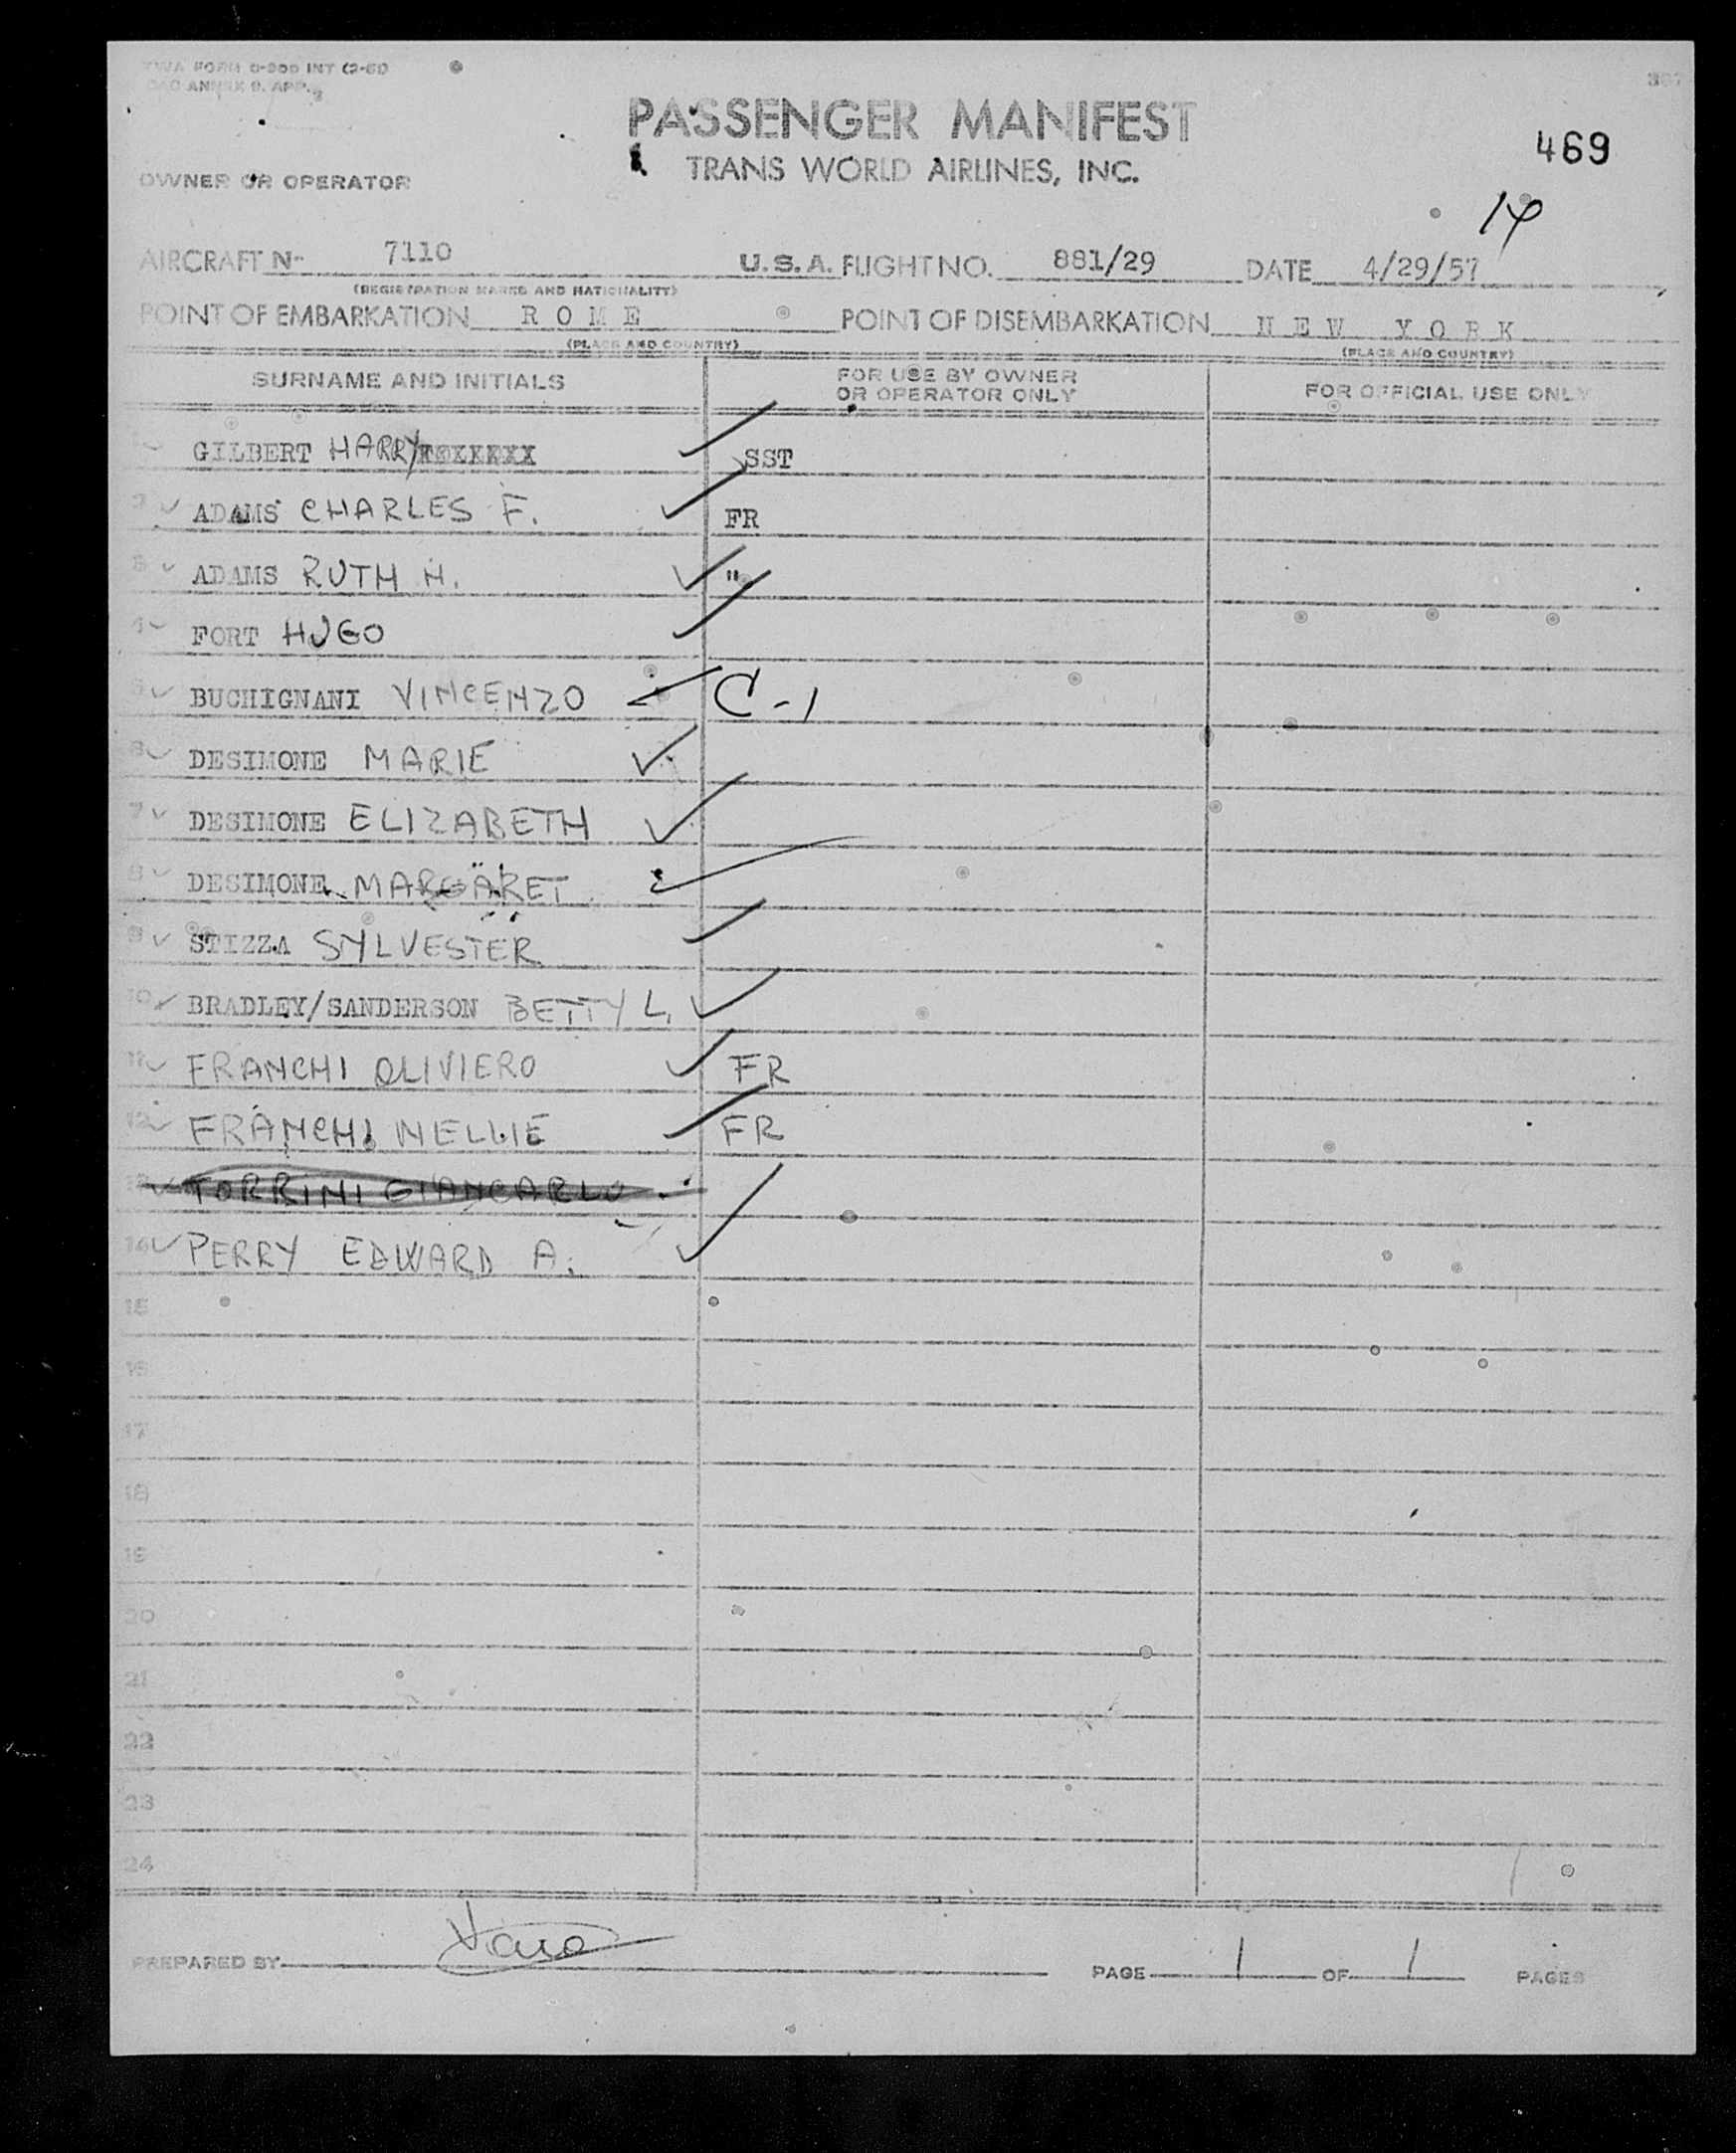 TWA FORM O-905 INT (2-51)
ICAO ANNEX 9, APP. 3
PASSENGER MANIFEST
469
TRANS WORLD AIRLINES, INC.
OWNER OR OPERATOR
14
AIRCRAFT N- 7110 U.S.A. FLIGHT NO. 881/29 DATE 4/29/57
(REGISTRATION MARKS AND NATIONALITY)
POINT OF EMBARKATION R O M E POINT OF DISEMBARKATION N E W Y O R K
(PLACE AND COUNTRY) (PLACE AND COUNTRY)
SURNAME AND INITIALS FOR USE BY OWNER OR OPERATOR ONLY FOR OFFICIAL USE ONLY
1 GILBERT HARRY SST
2 ADAMS CHARLES F. FR
3 ADAMS RUTH H. "
4 FORT HUGO
5 BUCHIGNANI VINCENZO C-1
6 DESIMONE MARIE
7 DESIMONE ELIZABETH
8 DESIMONE MARGARET
9 STIZZA SYLVESTER
10 BRADLEY/SANDERSON BETTY L.
11 FRANCHI OLIVIERO FR
12 FRANCHI NELLIE FR
13 TORRINI GIANCARLO
14 PERRY EDWARD A.
15
16
17
18
19
20
21
22
23
24
PREPARED BY PAGE 1 OF 1 PAGES